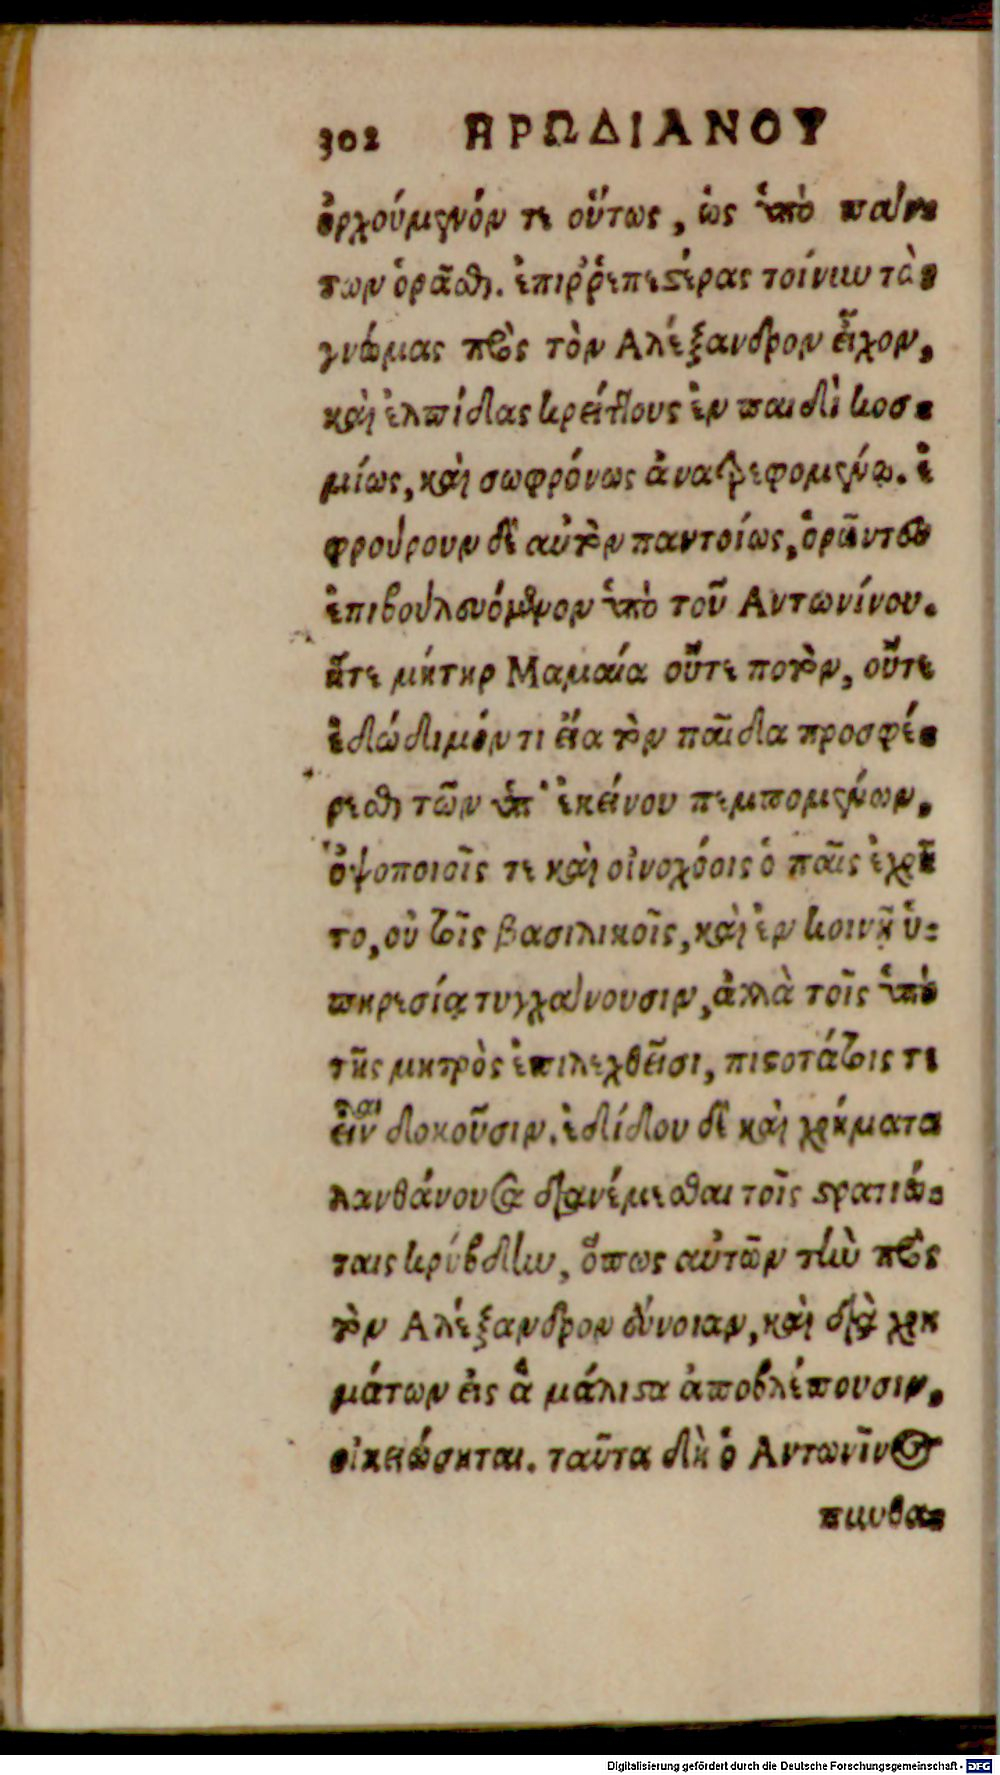 302 ΗΡΩΔΙΑΝΟΥ
ὀρχούμενόν τε οὕτως, ὡς ὑπὸ πάν-
των ὁρᾶσθαι. ἐπιρρεπεστέρας τοίνυν τὰς
γνώμας πρὸς τὸν Αλέξανδρον εἶχον,
καὶ ἐλπίδας κρείττους ἐν παιδὶ κοσ-
μίως, καὶ σωφρόνως ἀνατρεφομένῳ. ἐ
φρούρουν δὲ αὐτὸν παντοίως, ὁρῶντες
ἐπιβουλευόμενον ὑπὸ τοῦ Αντωνίνου.
ἥτε μήτηρ Μαμαία οὔτε ποτὸν, οὔτε
ἐδώδιμόν τι εἴα τὸν παῖδα προσφέ-
ρεσθαι τῶν ὑπ' ἐκείνου πεμπομένων.
ὀψοποιοῖς τε καὶ οἰνοχόοις ὁ παῖς ἐχρῆ
το, οὐ τοῖς βασιλικοῖς, καὶ ἐν κοινῇ ὑ-
πηρεσίᾳ τυγχάνουσιν, ἀλλὰ τοῖς ὑπὸ
τῆς μητρὸς ἐπιλεχθεῖσι, πιστοτάτοις τε
εἶναι δοκοῦσιν. ἐδίδου δὲ καὶ χρήματα
λανθάνουσα διανέμεσθαι τοῖς στρατιώ-
ταις κρύβδην, ὅπως αὐτῶν τὴν πρὸς
τὸν Αλέξανδρον εὔνοιαν, καὶ διὰ χρη
μάτων εἰς ἃ μάλιστα ἀποβλέπουσιν,
οἰκειώσηται. ταῦτα δὴ ὁ Αντωνῖνος
πυνθα-
Digitalisierung gefördert durch die Deutsche Forschungsgemeinschaft - DFG